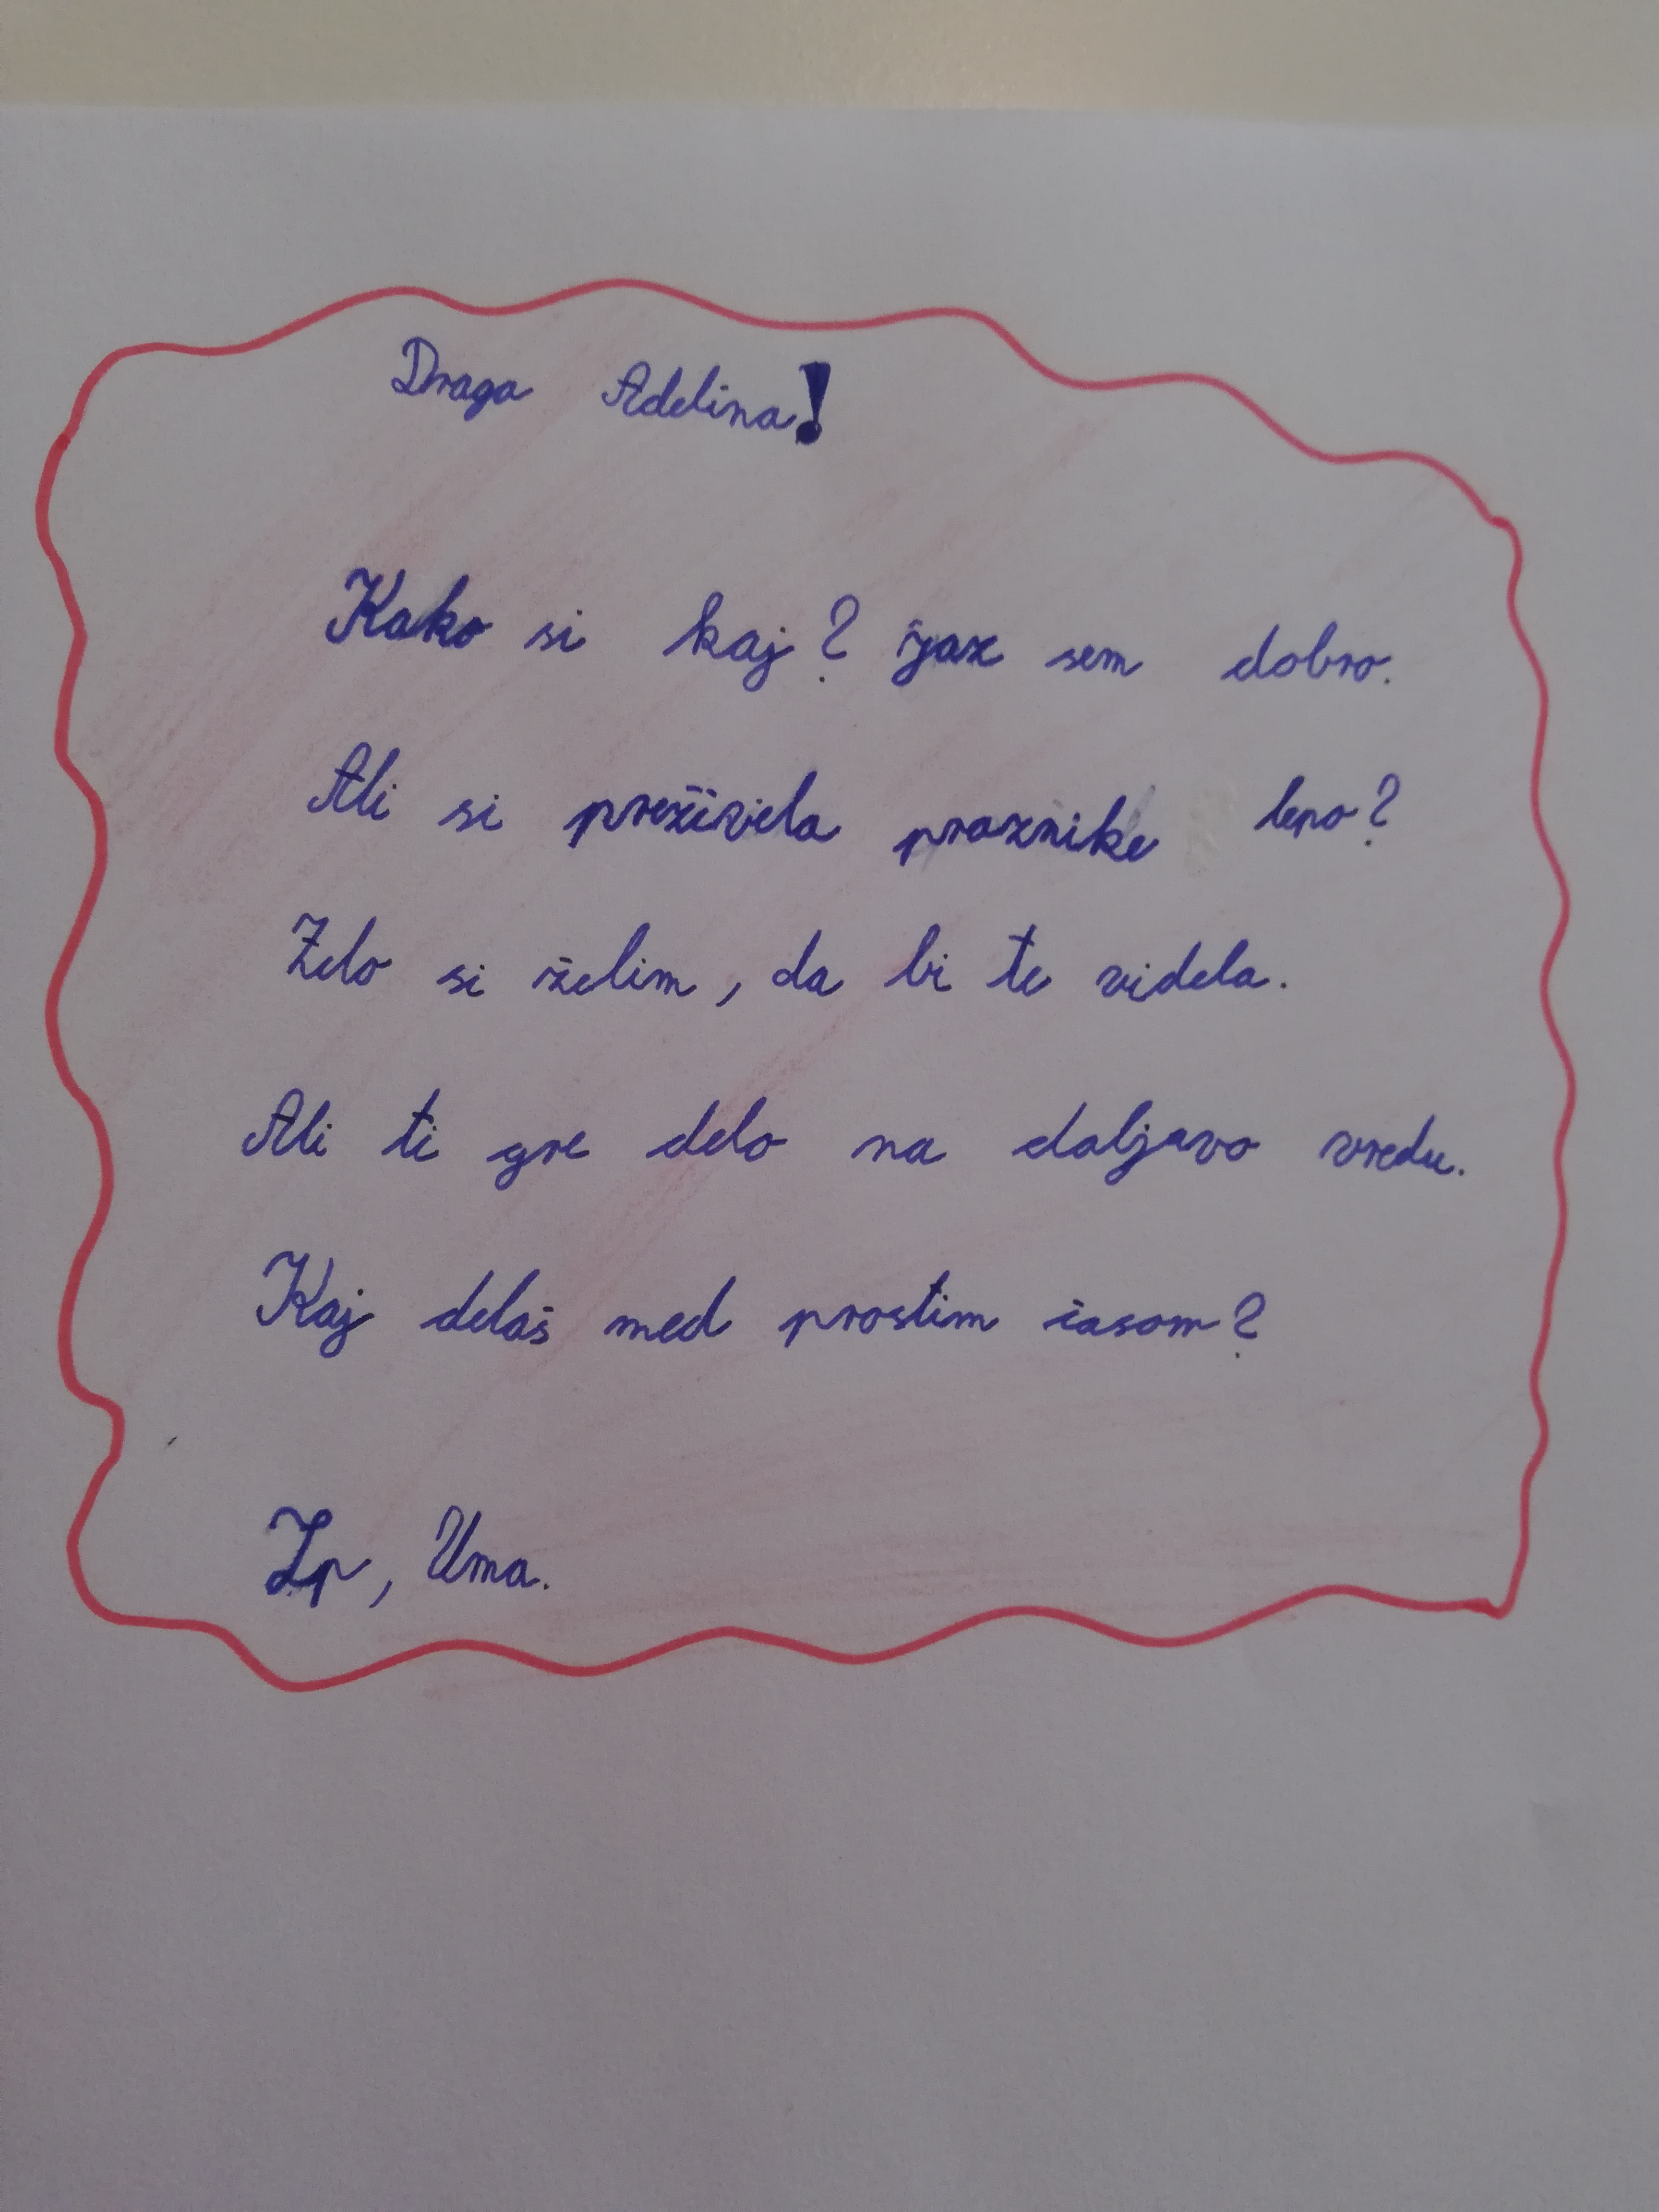 Draga Adelina!
Kako si kaj? Jaz sem dobro.
Ali si preživela praznike lepo?
Zelo si želim, da bi te videla.
Ali ti gre delo na daljavo vredu.
Kaj delaš med prostim časom?
Lp, Uma.